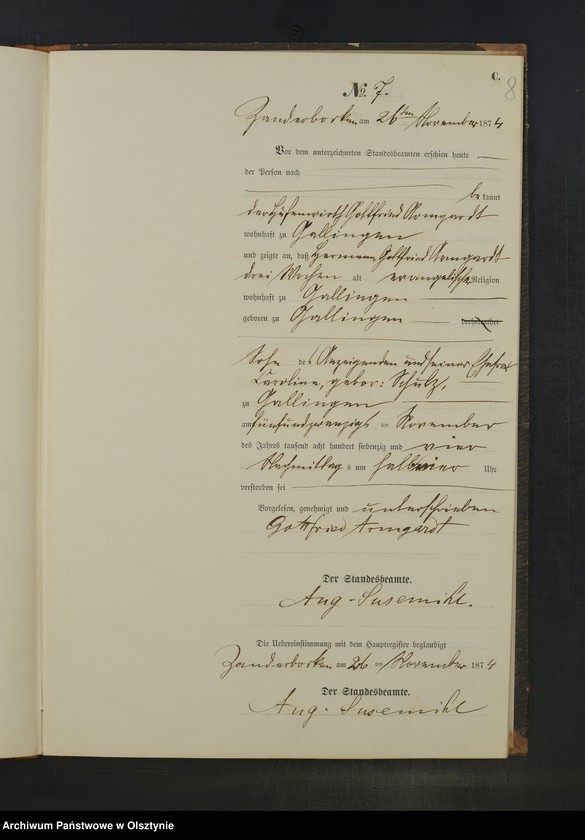 C.
8
No. 7.
Zanderborken am 26ten November 1874
Vor dem unterzeichneten Standesbeamten erschien heute
der Person nach
bekannt
der Hufenwirth Gottfried Armgardt
wohnhaft zu Gallingen
und zeigte an, daß Hermann Gottfried Armgardt
drei Wochen alt evangelischer Religion
wohnhaft zu Gallingen
geboren zu Gallingen verheirathet
Sohn des Anzeigenden und seiner Ehefrau
Caroline, gebor: Schulz,
zu Gallingen
am fünfundzwanzigs ten November
des Jahres tausend acht hundert siebenzig und vier
Nachmittags um halb vier Uhr
verstorben sei
Vorgelesen, genehmigt und unterschrieben
Gottfried Armgardt
Der Standesbeamte.
Aug. Susemihl.
Die Uebereinstimmung mit dem Hauptregister beglaubigt
Zanderborken am 26 ten November 1874
Der Standesbeamte.
Aug. Susemihl
Archiwum Państwowe w Olsztynie